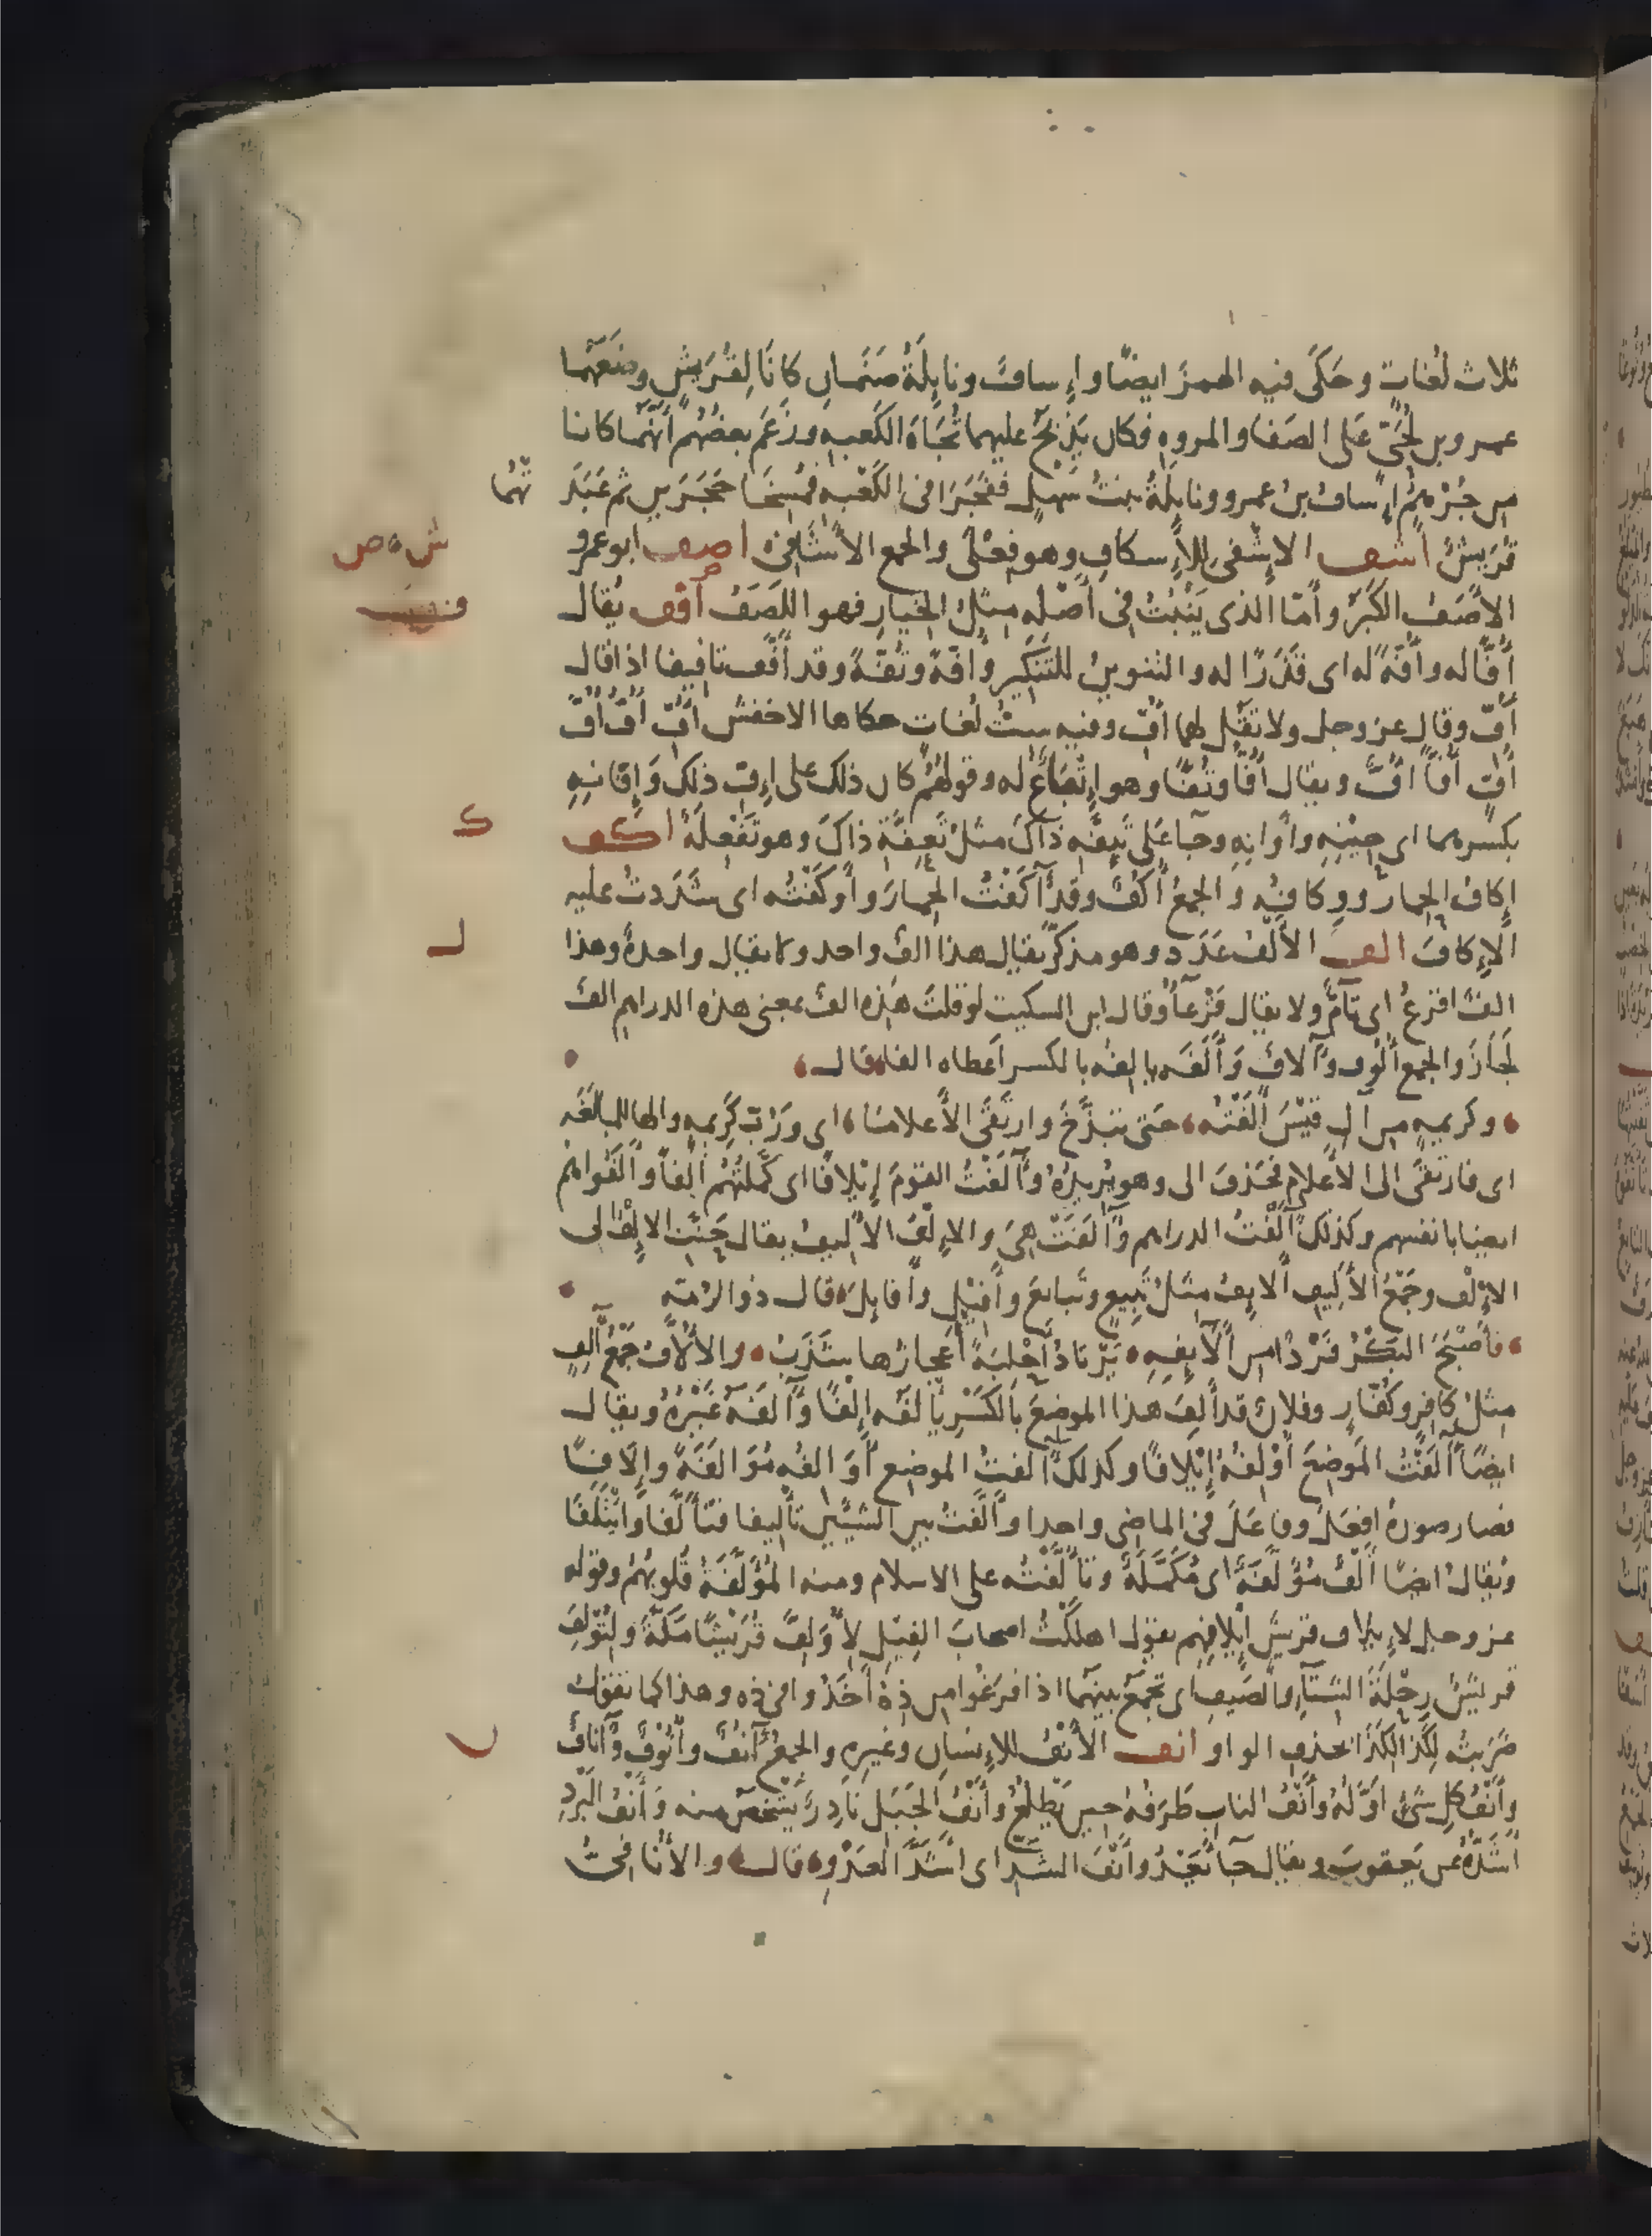 ثلاث لُغاتٍ وحَكَى فيه الهمزَ ايضًا وإِسافٌ ونايِلَةُ صَنَمانِ كانَا لِقُرَيشٍ وضَعَهُما
عمرو بن لُحَيٍّ عَلى الصَفا والمروهِ فكان يَذْبَحُ عليهما تُجَاهَ الكَعبهِ وزَعَم بعضُهُم أَنَّهُما كانا
من جُرْهُمٍ إِسافُ بنُ عمرو ونايِلَةُ بنتُ سَهْلٍ ففَجَرَا فى الكَعْبهِ فمُسِخَا حَجَرَينِ ثم عَبَدَ
تْهُما
قُرَيشٌ اشف الإِشْفى للإِسكافِ وهو فِعْلَى والجمع الأَشَافِى اصف ابو عمرو
ش ص
الأَصَفُ الكَبَرُ وأَمّا الذى يَنْبُتُ فى أَصْلِه مِثلُ الخِيارِ فهو اللَصَفُ افف يُقال
ف
أُفًّا له وأُفَّةً له اى قَذَرًا له والتنوينُ للتَنكيرِ وأُفَّةً وتُفَّةً وقد أَفَّفَ تافيفا اذا قال
أُفّ وقال عز وجل ولا تَقُل لهما أُفّ وفيه سِتُّ لُغاتٍ حكاها الاخفش أُفِّ أُفَّ أُفُّ
أُفٍّ أُفًّا أُفٌّ ويقال أُفًّا وتُفًّا وهو إِتْباعٌ له وقولهُم كان ذلك على إِفِّ ذلك وَإِفّانِهِ
بكسرهما اى حِيْنِهِ وأَوانِهِ وجا على تَئِفَّهِ ذاكَ مثلُ تَعِفَّةِ ذاكَ وهو تَفْعِلَةٌ اكف
ك
إِكافُ الحِمار ووِكافُهُ والجمعُ أُكُفٌ وقد آكَفْتُ الحِمارَ وأَوكَفْتُه اى شَدَدتُ عليه
الإِكافَ الف الأَلْفُ عَدَد وهو مذكّر يقال هذا الفٌ واحد ولا يقال واحدةٌ وهذا
ل
الفٌ اقرَعُ اى تامٌّ ولا يقال قَرْعآءُ وقال ابن السكيت لو قلتَ هَذِه الفٌ بمعنى هذه الدراهم الفٌ
لَجَازَ والجمع أُلُوف وآلافٌ وَأَلَفَه يالِفُه بالكسر أعطاه الفا قال
وكريمهٍ من آلِ قَيْسَ أَلَفْتُه حَتى تبَذَّخَ وارتَقَى الأَعلامِ اى ورُبّ كَريمهٍ والها للمبالَغَه
اى فارتقَى الى الأَعلامِ فحَذفَ الى وهو يُريدُهُ وآلَفْتُ القومَ إِيْلافًا اى كَمَّلتُهُم أَلفًا وآلَفُوا هُم
ايضا بانفسهم وكذلك آلَفْتُ الدراهم وآلَفَتْ هى والإِلْفُ الأَليفُ يقال حَنّتِ الإِلْفُ الى
الإِلْف وجَمْعُ الأَلِيفِ أَلايِفُ مِثلُ تَبِيعٍ وتَبايعَ وأَفِيْلٍ وأَفايِلَ قال ذو الرُمّه
فأَصْبَحَ البَكْرُ فَرْدًا من أَلايِفِهِ يَرْتادُ أَحْلِيَةً أَعجازُها شَذَبُ والأُلاّفُ جَمْعُ آلِفٍ
مثلُ كافِرٍ وكُفّارٍ وفلانٌ قد أَلِفَ هذا الموضِعَ بالكَسْرِ يَأْلَفُه إِلْفًا وآلَفَهُ غَيْرُهُ ويقال
ايضًا آلَفْتُ المَوضِعَ أُوْلِفُهُ إِيْلافًا وكذلك آلفتُ الموضِع أُوَالِفُه مُوَالَفَةً وإِلافًا
فصار صورةُ افعَلَ وفاعَلَ فى الماضى واحدا وأَلَّفْتُ بين الشيئَينِ تأليفا فتألّفا وائتَلَفَا
ويُقالُ ايضًا أَلْفٌ مُؤَلَّفَةٌ اى مُكَمَّلَةٌ وتأَلَّفْتُه على الاسلام ومنه المُؤَلَّفَةُ قُلوبُهُم وقوله
عز وجل لإِيلافِ قريش إِيلافِهِم يقول اهلَكْتُ اصحابَ الفِيْلِ لأُولِفَ قُرَيْشًا مَكّةَ ولِتُؤلِفَ
قريشٌ رِحْلَةَ الشتآءِ والصَيفِ اى تجمَعَ بينهُما اذا فرَغُوا من ذِهْ أَخَذُوا فى ذِه وهذا كما تقول
ضَرَبتُه لِكَذا لِكَذا بحذف الواو انف الأَنْفُ للإِنسانِ وغيرِهِ والجمعُ آنُفٌ وأُنُوفٌ وآنافٌ
ن
وأَنْفُ كلِّ شئٍ اوّلُهُ وأَنْفُ النابِ طَرَفُهُ حينَ يَطلُعُ وأَنْفُ الجَبَلِ نادِرٌ يَشْخَصُ منه وَأَنْفُ البَرْدِ
أَشَدُّهُ عن يَعقوبَ ويقال جآ يَعْدُو أَنْفَ الشَدِّ اى أَشَدَّ العَدْوِ قال والأنافىُّ